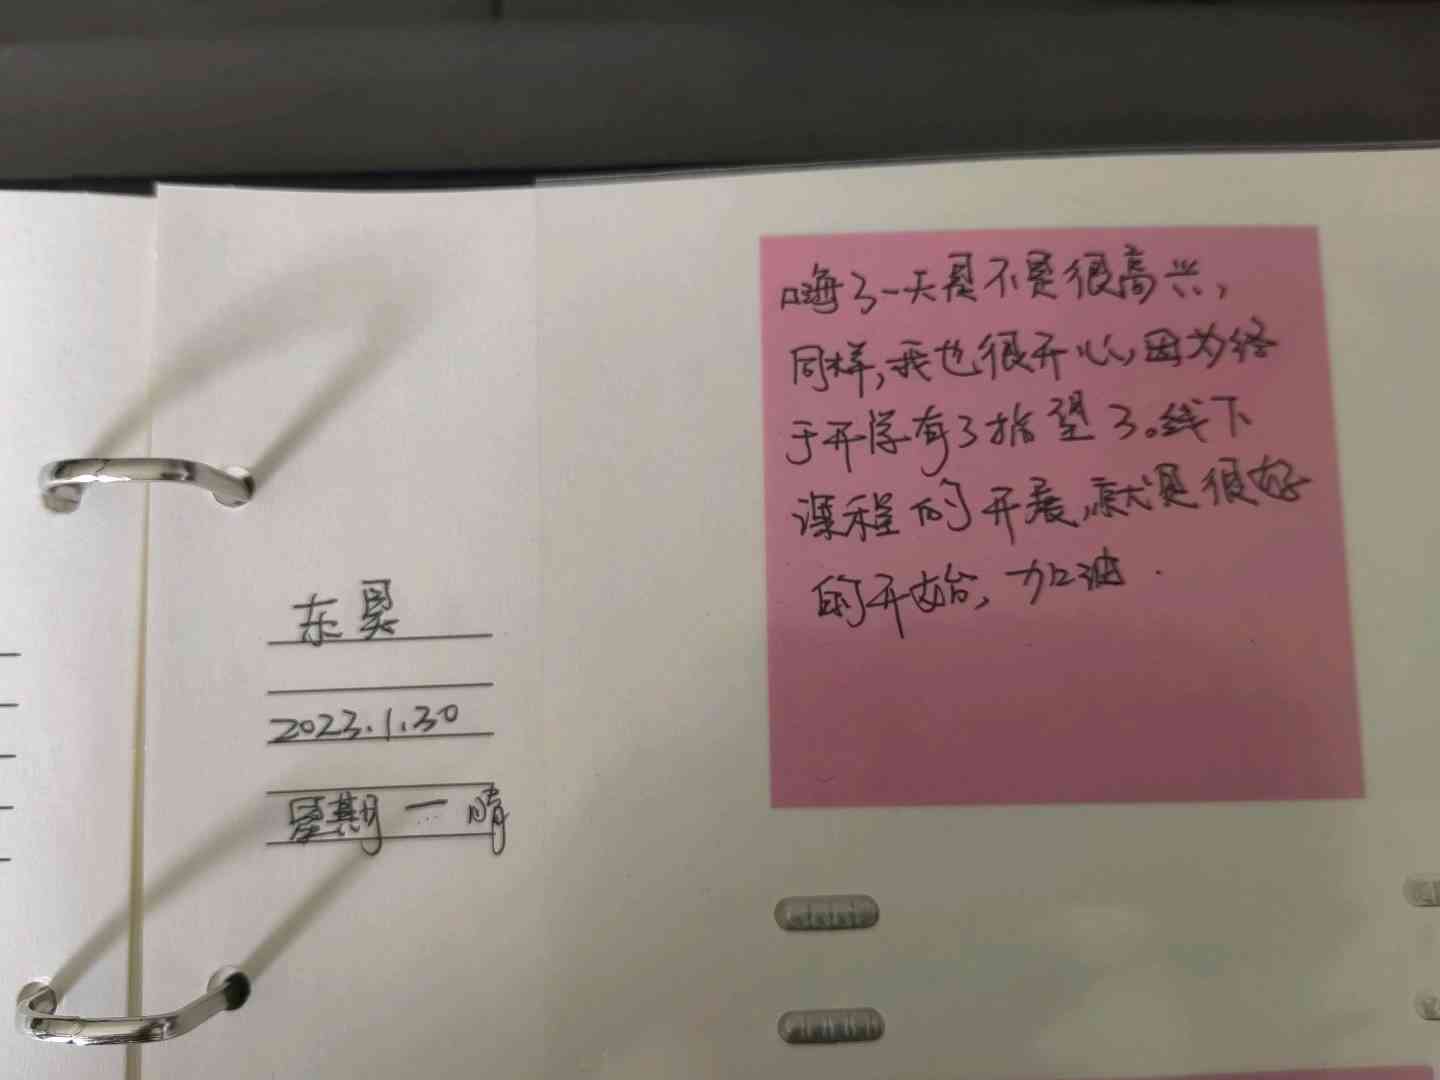 东昊
2023.1.30
星期一 晴
嗨了一天是不是很高兴，
同样，我也很开心，因为终
于开学有了指望了。线下
课程的开展，就是很好
的开始，加油.